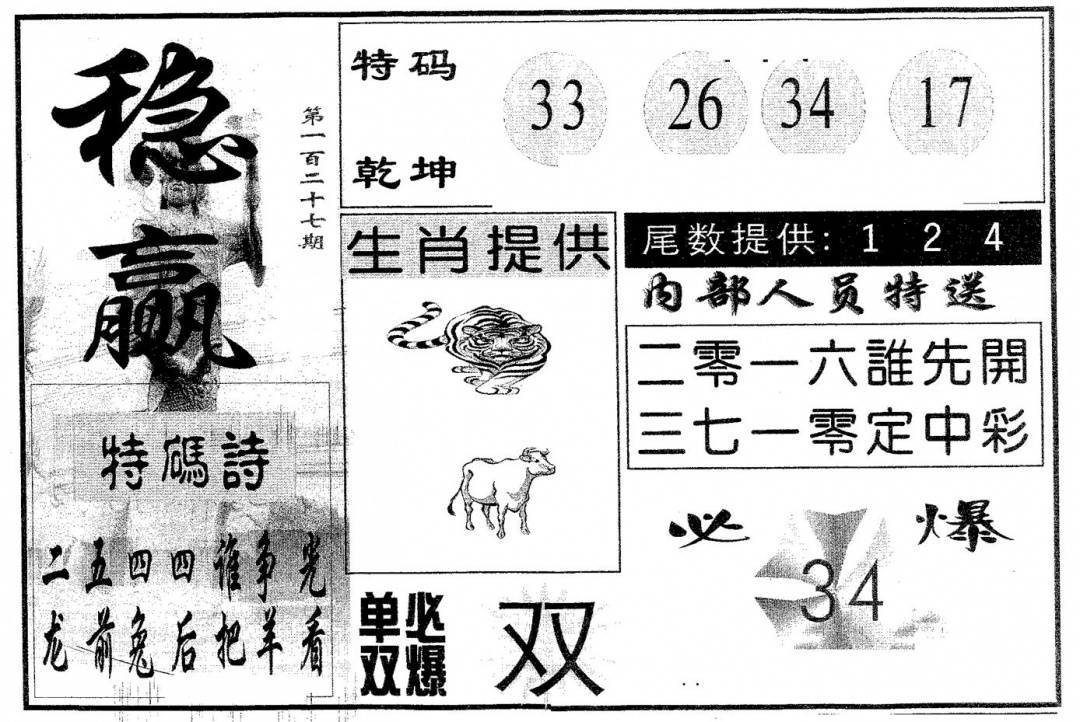 稳赢
第一百二十七期
特码诗
二五四四谁争光
龙前兔后把羊看
特码
乾坤
33 26 34 17
生肖提供
尾数提供: 1 2 4
内部人员特送
二零一六誰先開
三七一零定中彩
必爆
34
单双
必爆
双